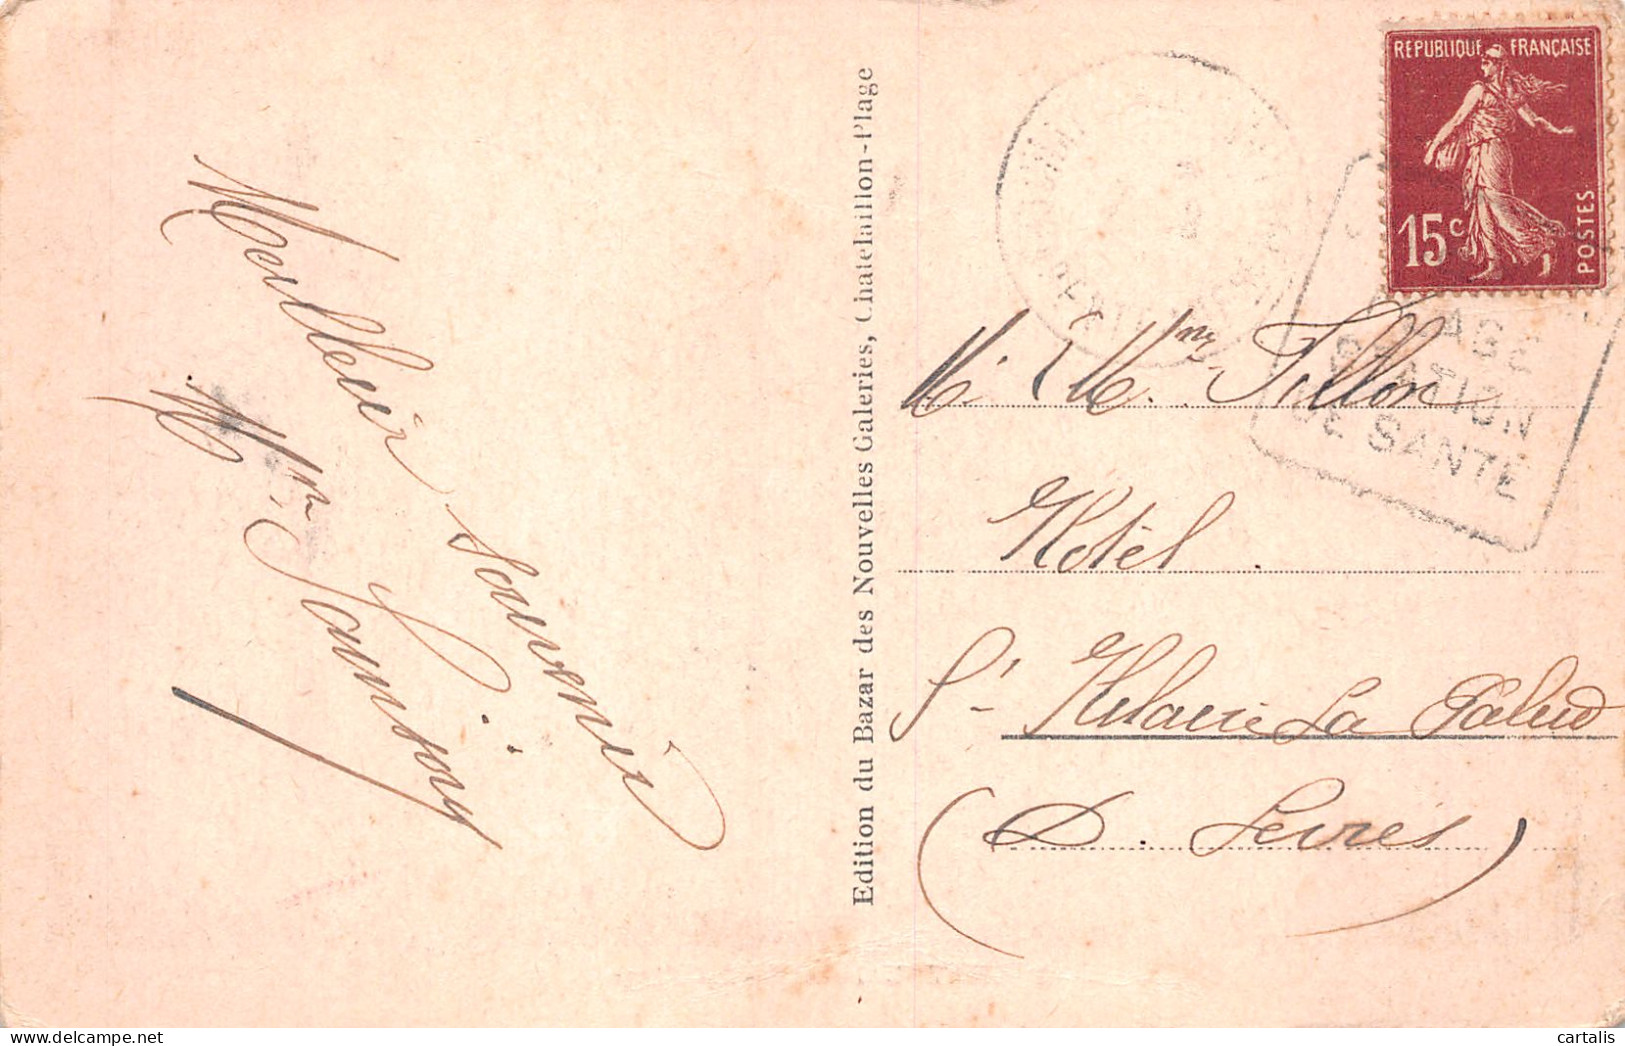 Meilleur souvenir
Edition du Bazar des Nouvelles Galeries, Chatelaillon-Plage
REPUBLIQUE FRANÇAISE
15c
POSTES
STATION
DE SANTÉ
M. Mme Fillon
Hotel
St Hilaire La Palud
(D. Sevres)
cartalis